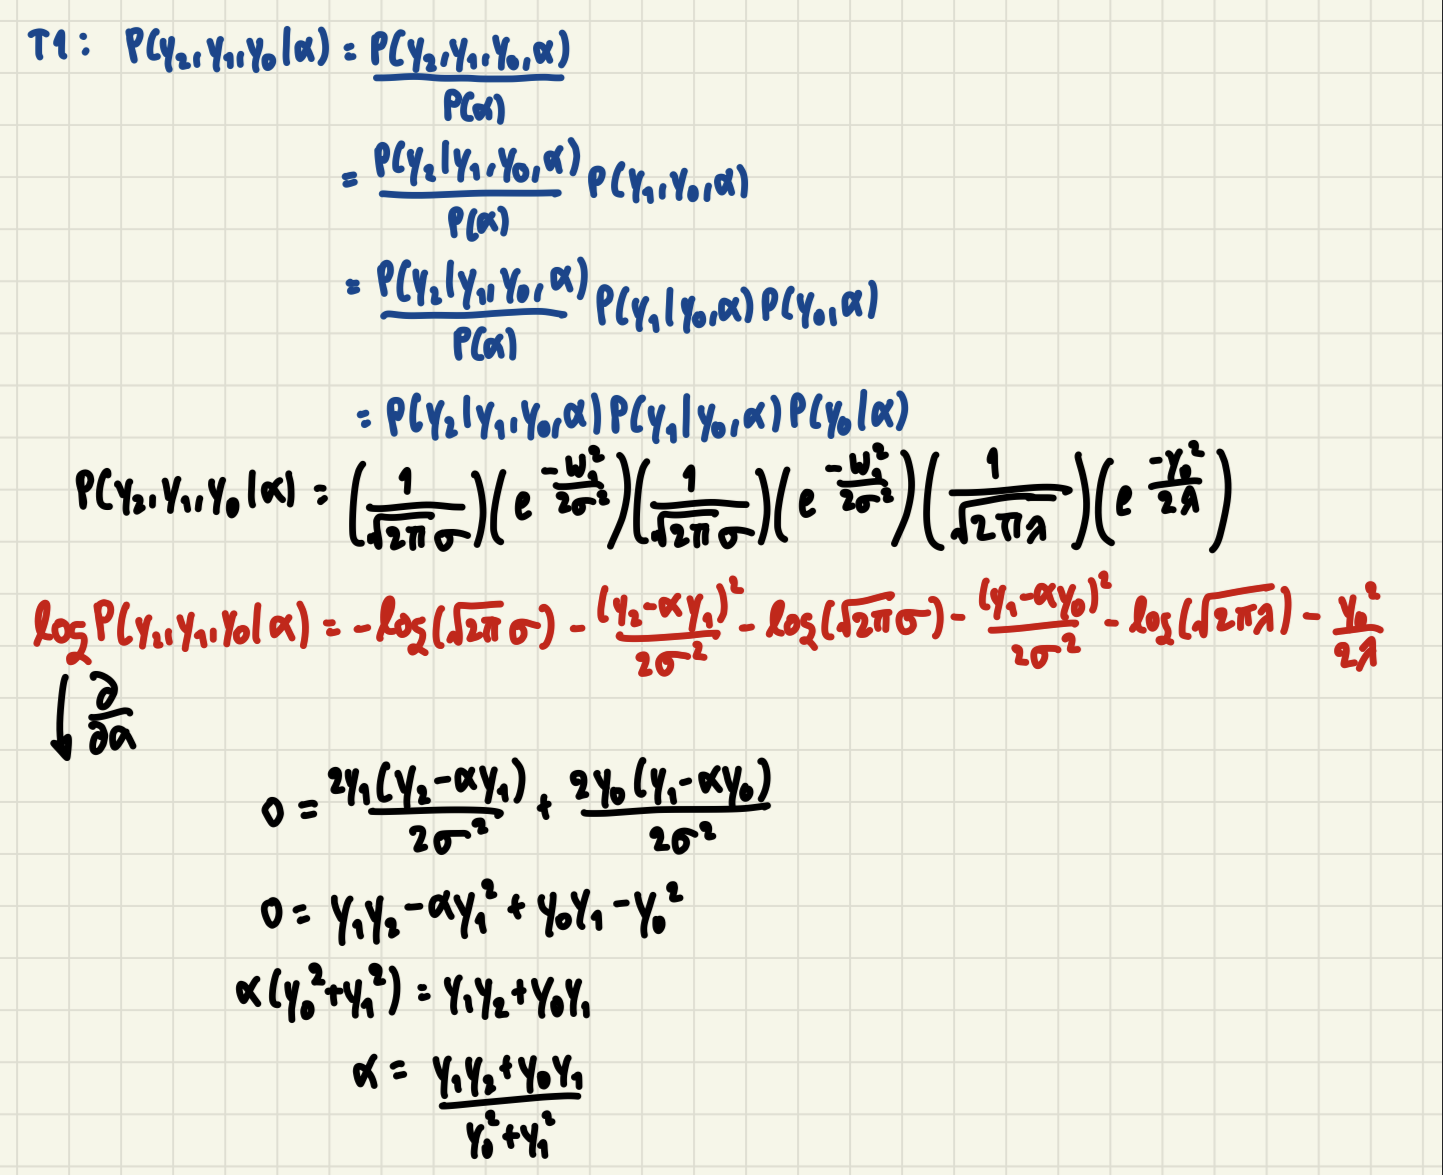 T1: P(y₂, y₁, y₀ | α) = P(y₂, y₁, y₀, α) / P(α)
= P(y₂ | y₁, y₀, α) / P(α) P(y₁, y₀, α)
= P(y₂ | y₁, y₀, α) / P(α) P(y₁ | y₀, α) P(y₀, α)
= P(y₂ | y₁, y₀, α) P(y₁ | y₀, α) P(y₀ | α)
P(y₂, y₁, y₀ | α) = (1 / √(2π) σ) (e^(-w₁² / 2σ²)) (1 / √(2π) σ) (e^(-w₁² / 2σ²)) (1 / √(2πλ)) (e^(-y₀² / 2λ))
log P(y₂, y₁, y₀ | α) = - log(√(2π) σ) - (y₂ - αy₁)² / 2σ² - log(√(2π) σ) - (y₁ - αy₀)² / 2σ² - log(√(2πλ)) - y₀² / 2λ
↓ ∂/∂α
0 = 2y₁(y₂ - αy₁) / 2σ² + 2y₀(y₁ - αy₀) / 2σ²
0 = y₁y₂ - αy₁² + y₀y₁ - y₀²
α(y₀² + y₁²) = y₁y₂ + y₀y₁
α = (y₁y₂ + y₀y₁) / (y₀² + y₁²)